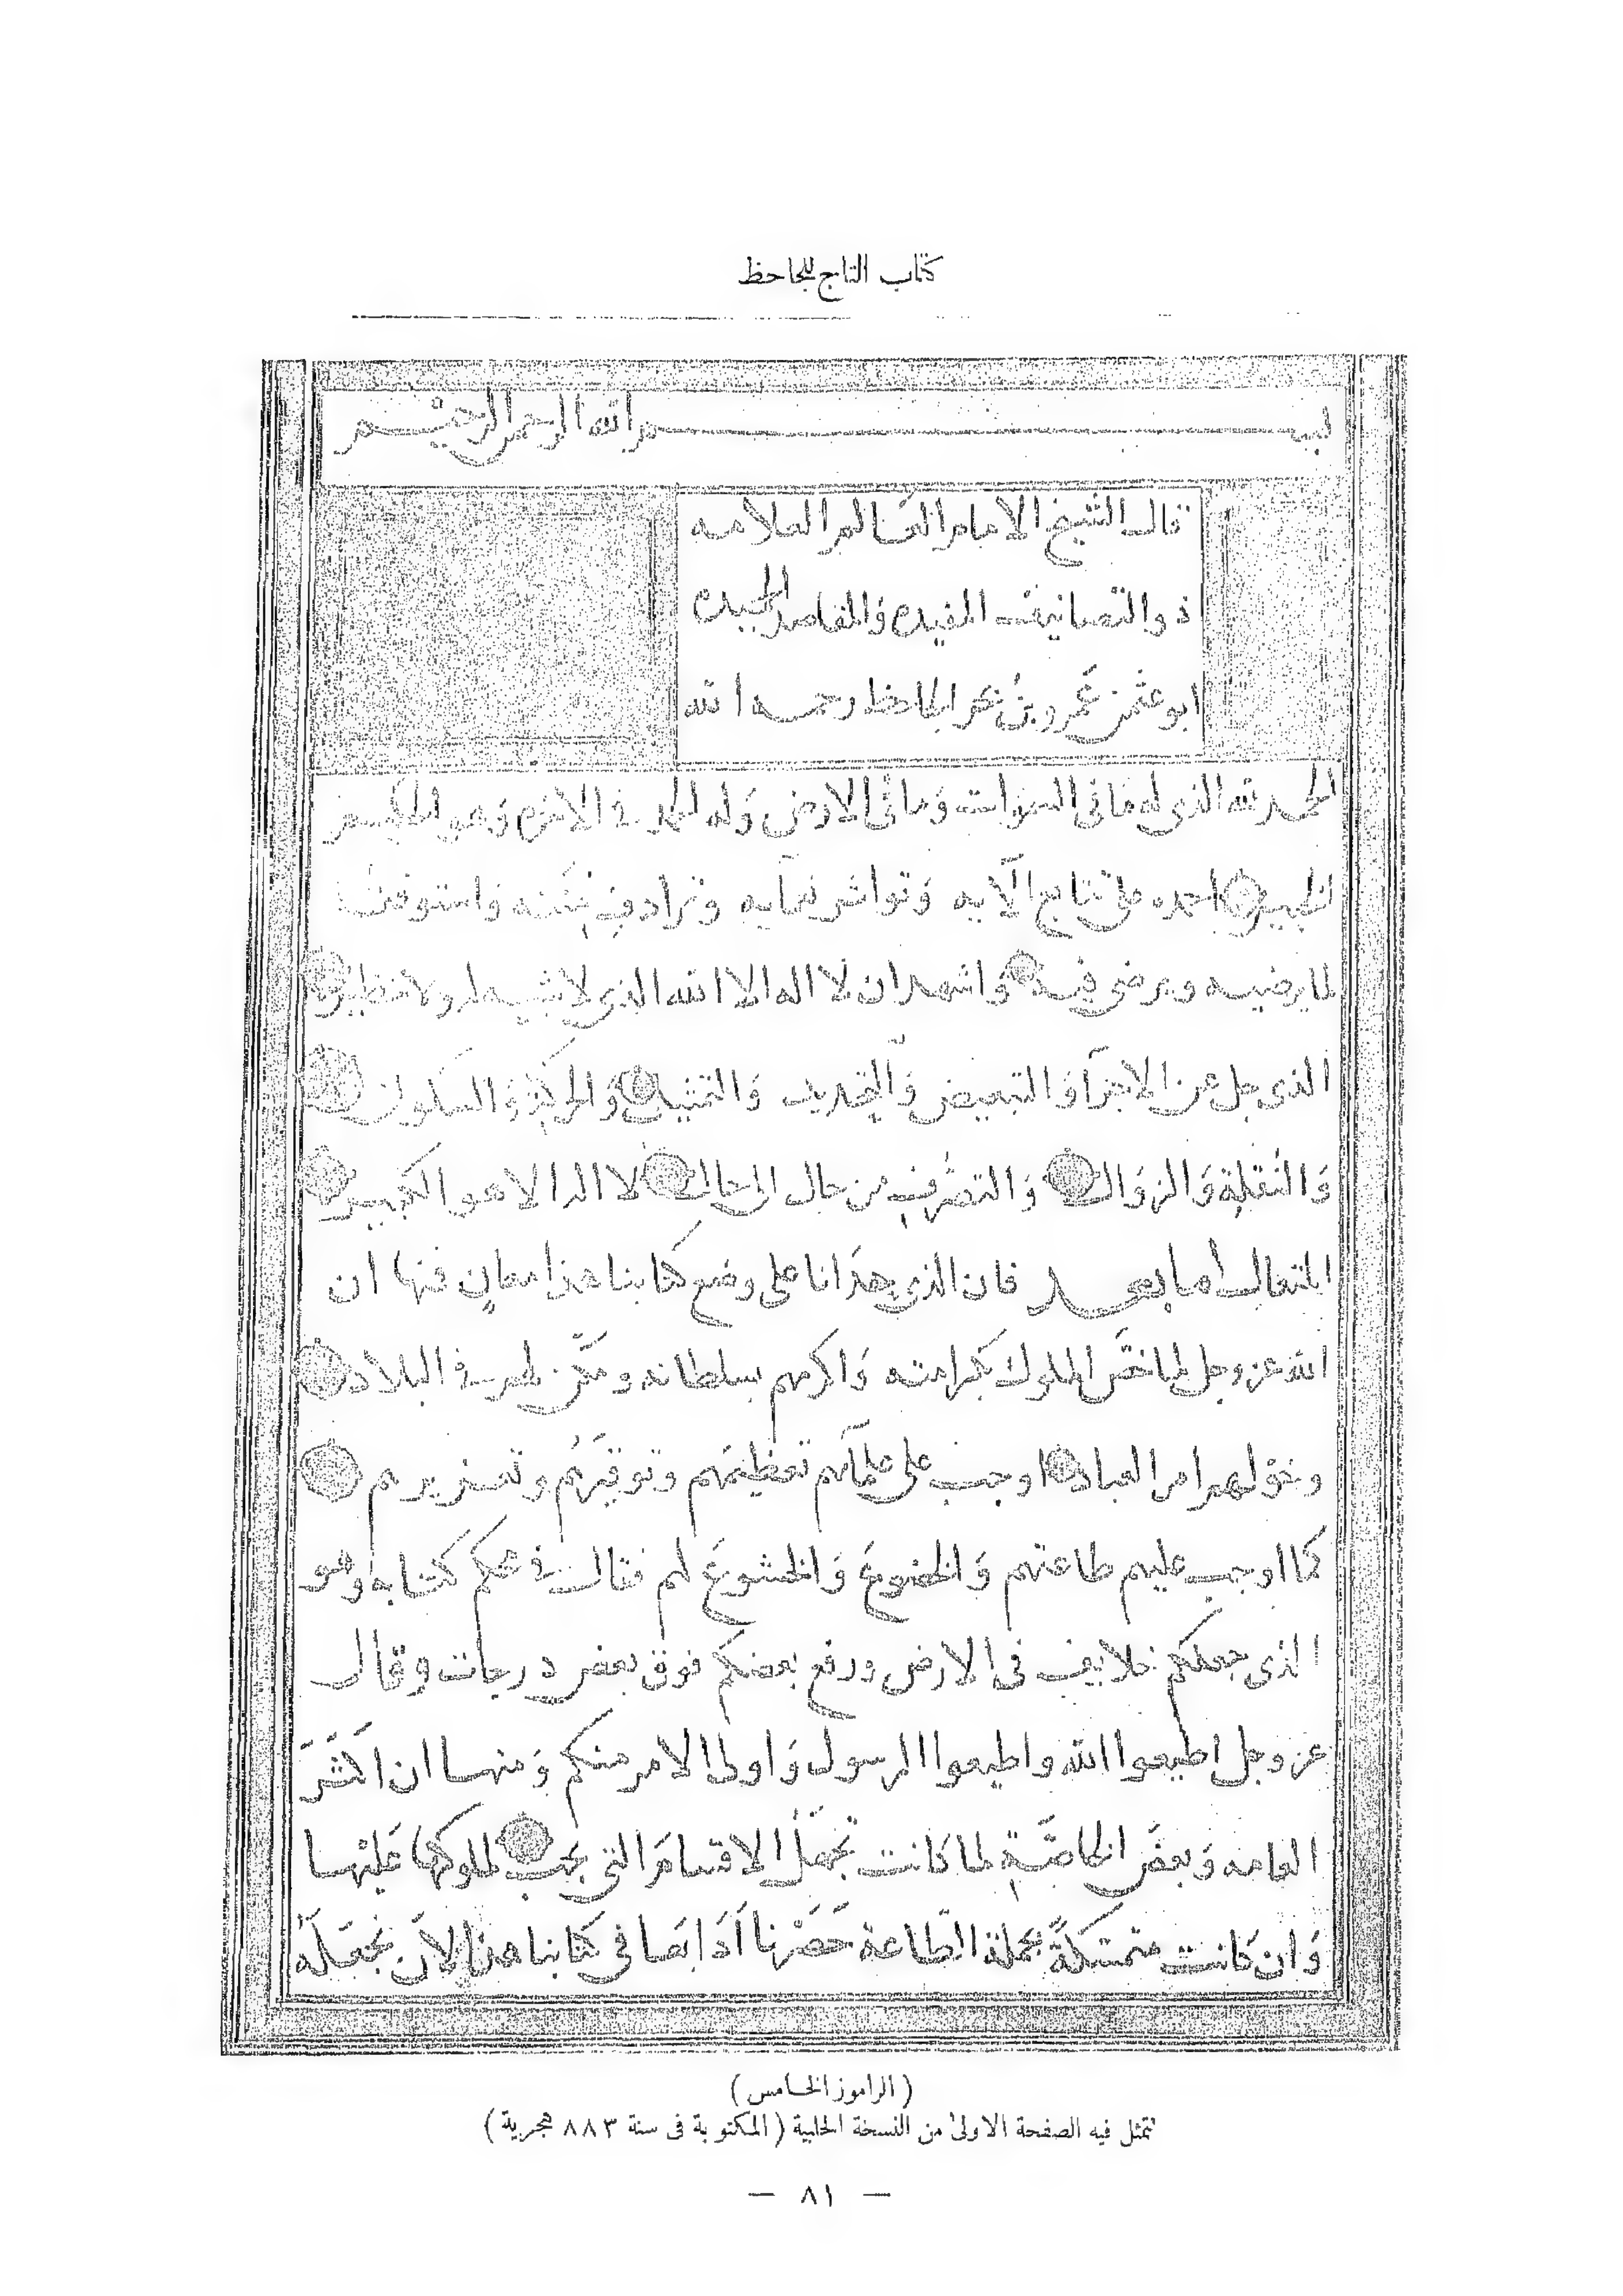 كتاب التاج للجاحظ
بسم الله الرحمن الرحيم
قال الشيخ الامام العالم العلامه
ذو التصانيف المفيده وَالمقاصد الحميده
ابو عثمن عَمرو بنُ بحر الجاحظ رحمه الله
الحمد لله الذي له مَا فى السموات وَما فى الارض وَله الحمد فى الاخرة وَهو الحكيم
الخبير احمده على تتابع آلايه وَتواتر نعمايه وترادف مننه واستوفقه
لما يرضيه ويرضى فيه وَاشهد ان لا اله الا الله الذى لا شبيه له ولا نظير
الذى جل عن الاجزآ وَالتبعيض وَالتحديد وَالتمثيل وَالحركة وَالسكون
وَالنقلة وَالزوَال وَالتصرُّف من حال الى حال لا اله الا هو الكبير
المتعال اما بعد فان الذى حدَانا على وضع كتابنا هذا معانٍ فنها ان
الله عز وجل لما خصَّ الملوك بكرامته وَاكرمهم بسلطانه ومكّن لهم فى البلاد
وخوّلهم امر العباد اوجب على علمآئهم تعظيمَهم وتوقيرَهُم وتعزيزهم
كما اوجب عليهم طاعتهم وَالخضوعَ وَالخشوعَ لهم فقال فى محكم كتابه وهو
الذى جعلكم خلايف فى الارض ورفع بعضكم فوق بعض درجات وقال
عز وجل اطيعوا الله واطيعوا الرسول وَاولى الامر منكم وَمنها ان اكثرَ
العامه وَبعضَ الخاصَّةِ لما كانت تجهَلُ الاقسامَ التى يجب لملوكها عَليْها
وَان كانت متمسّكةً بجملة الطاعة حَصَرْنا آدَابَها فى كتابنا هذا لأن نجعَلَهُ
( الراموز الخامس )
تتمثل فيه الصفحة الاولى من النسخة الحلبية ( المكتوبة فى سنة ٨٨٣ هجرية )
— ٨١ —